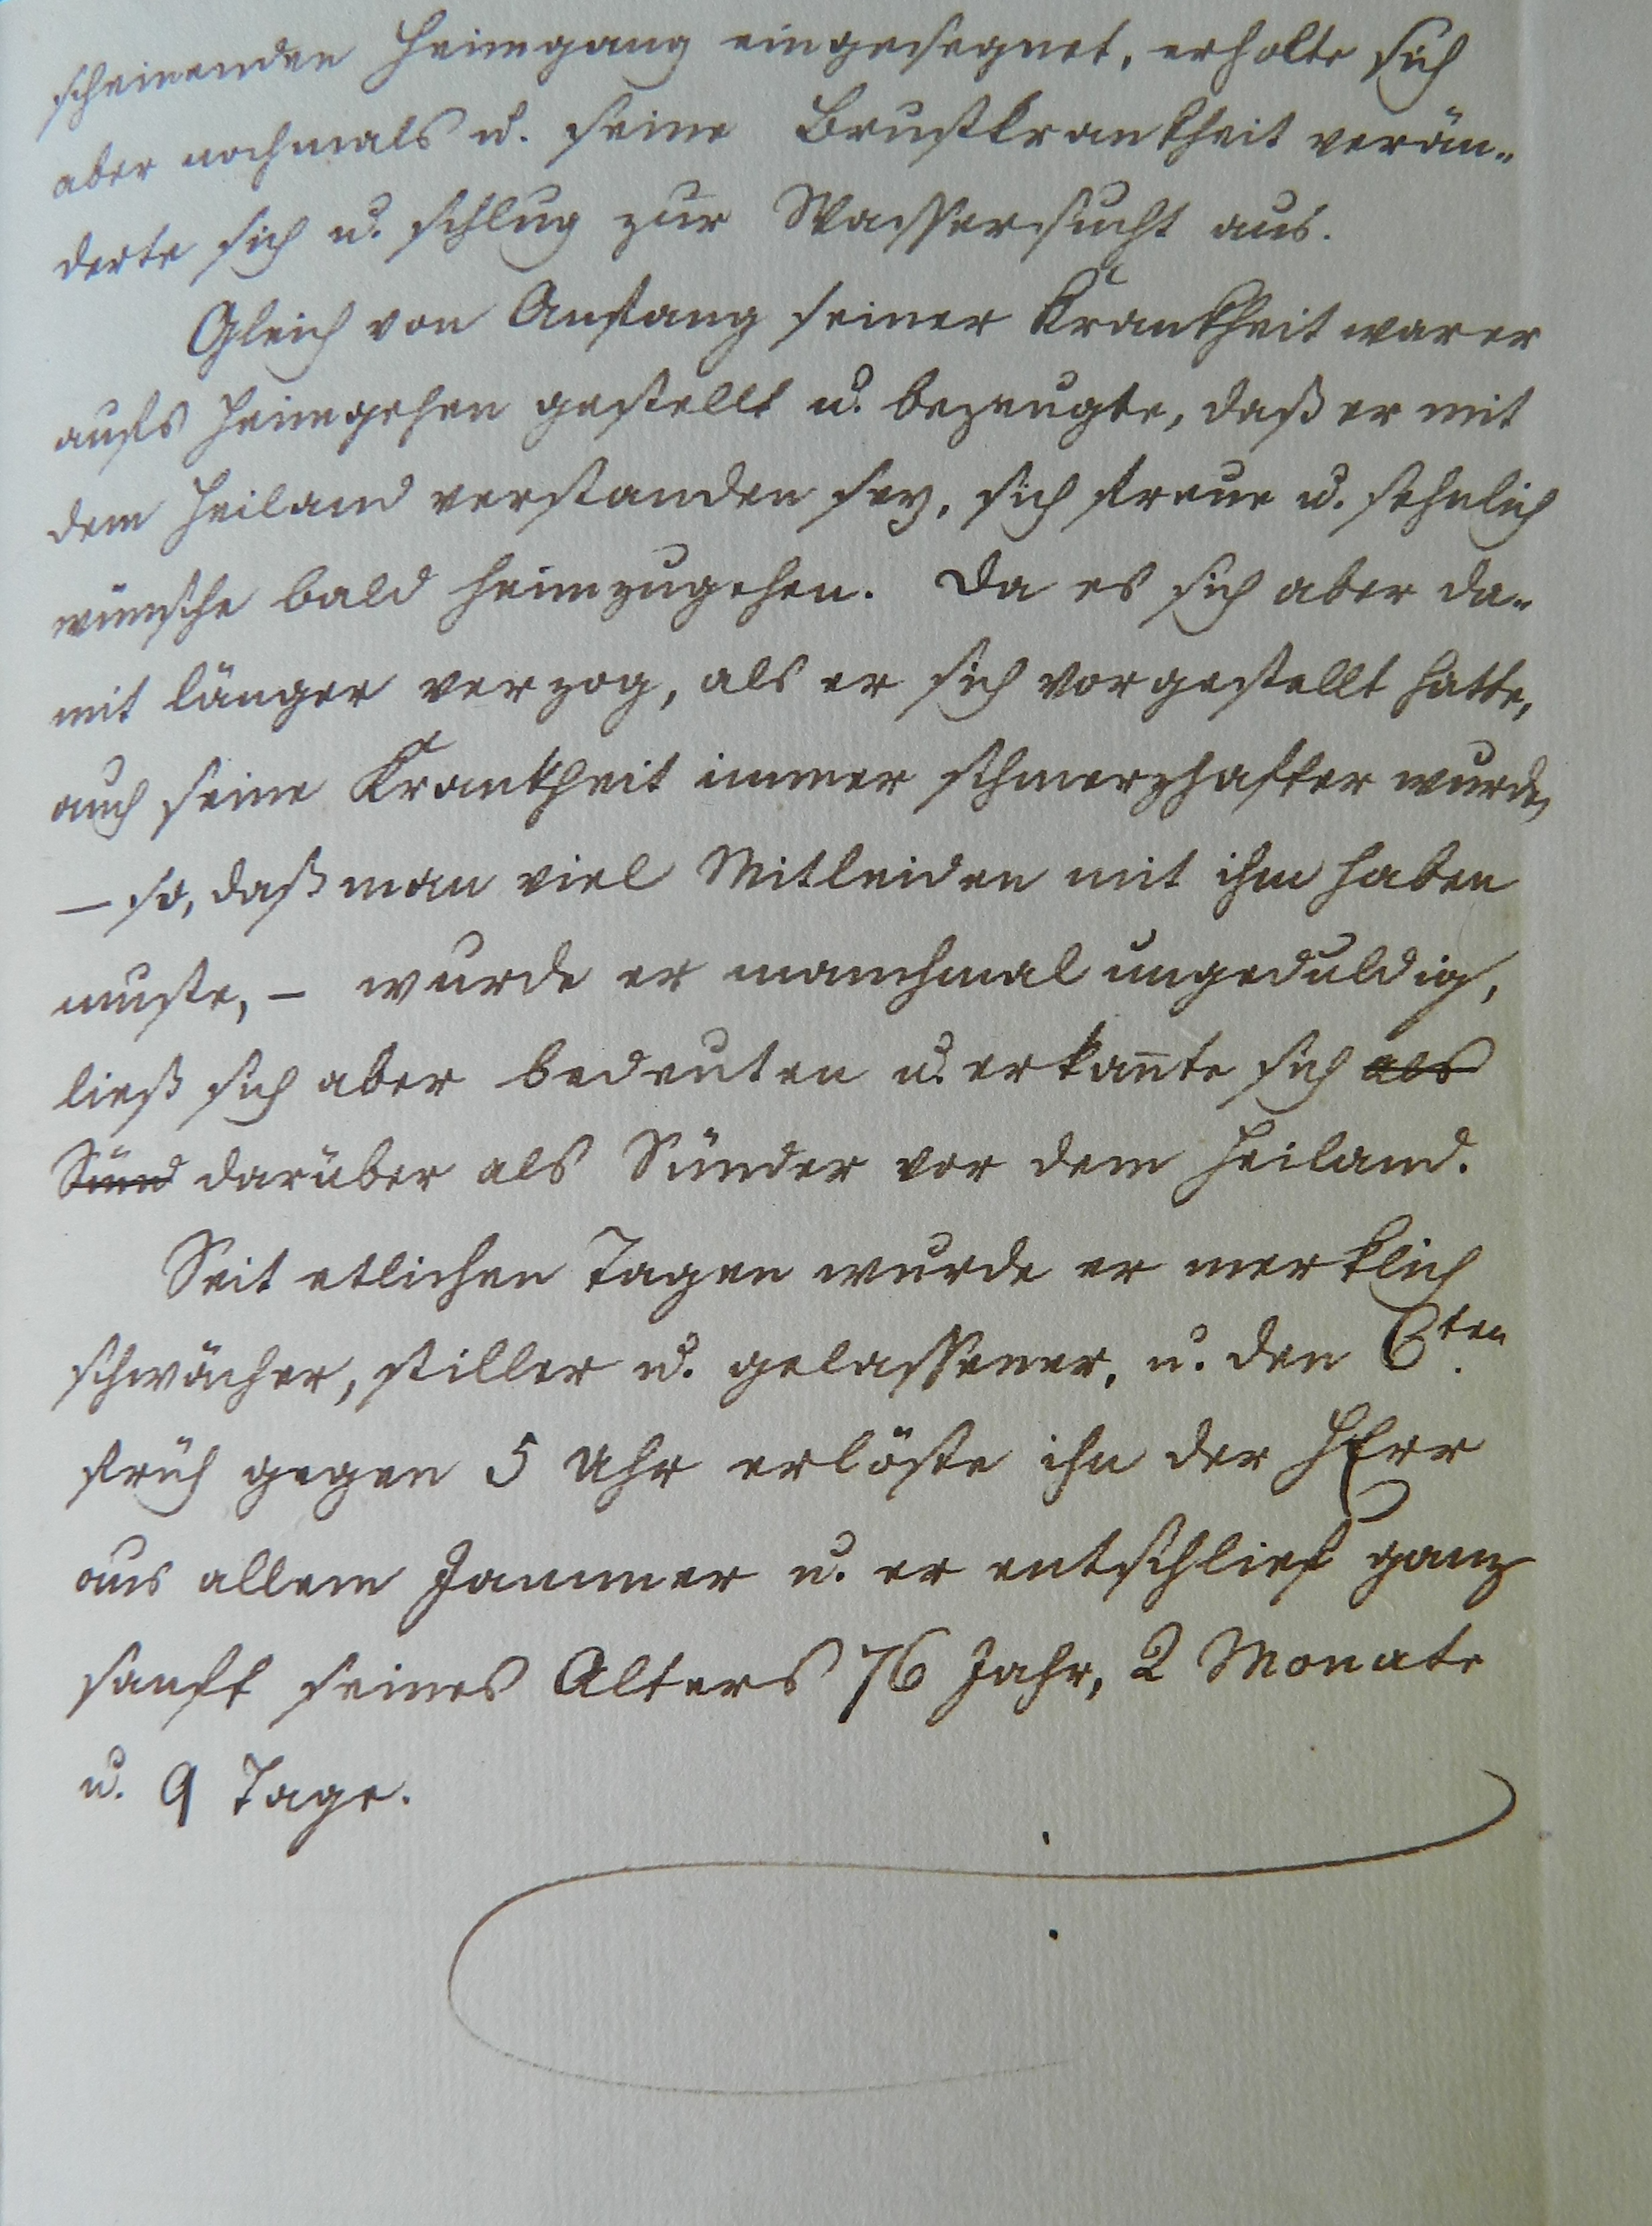 scheinenden Heimgang eingesegnet, erholte sich
aber nochmals u. seine Brustkrankheit verän-
derte sich u. schlug zur Wassersucht aus.
Gleich von Anfang seiner Krankheit war er
aufs Heimgehen gestellt u. bezeugte, daß er mit
dem Heiland verstanden sey, sich freue u. sehnlich
wünsche bald heimzugehen. Da es sich aber da-
mit länger verzog, als er sich vorgestellt hatte,
auch seine Krankheit immer schmerzhafter wurde,
– so, daß man viel Mitleiden mit ihm haben
muste, – wurde er manchmal ungeduldig,
ließ sich aber bedeuten u. erkan̄te sich als
Sünd darüber als Sünder vor dem Heiland.
Seit etlichen Tagen wurde er merklich
schwächer, stiller u. gelassener, u. den 6ten
früh gegen 5 Uhr erlöste ihn der HErr
aus allem Jammer u. er entschlief ganz
sanft seines Alters 76 Jahr, 2 Monate
u. 9 Tage.